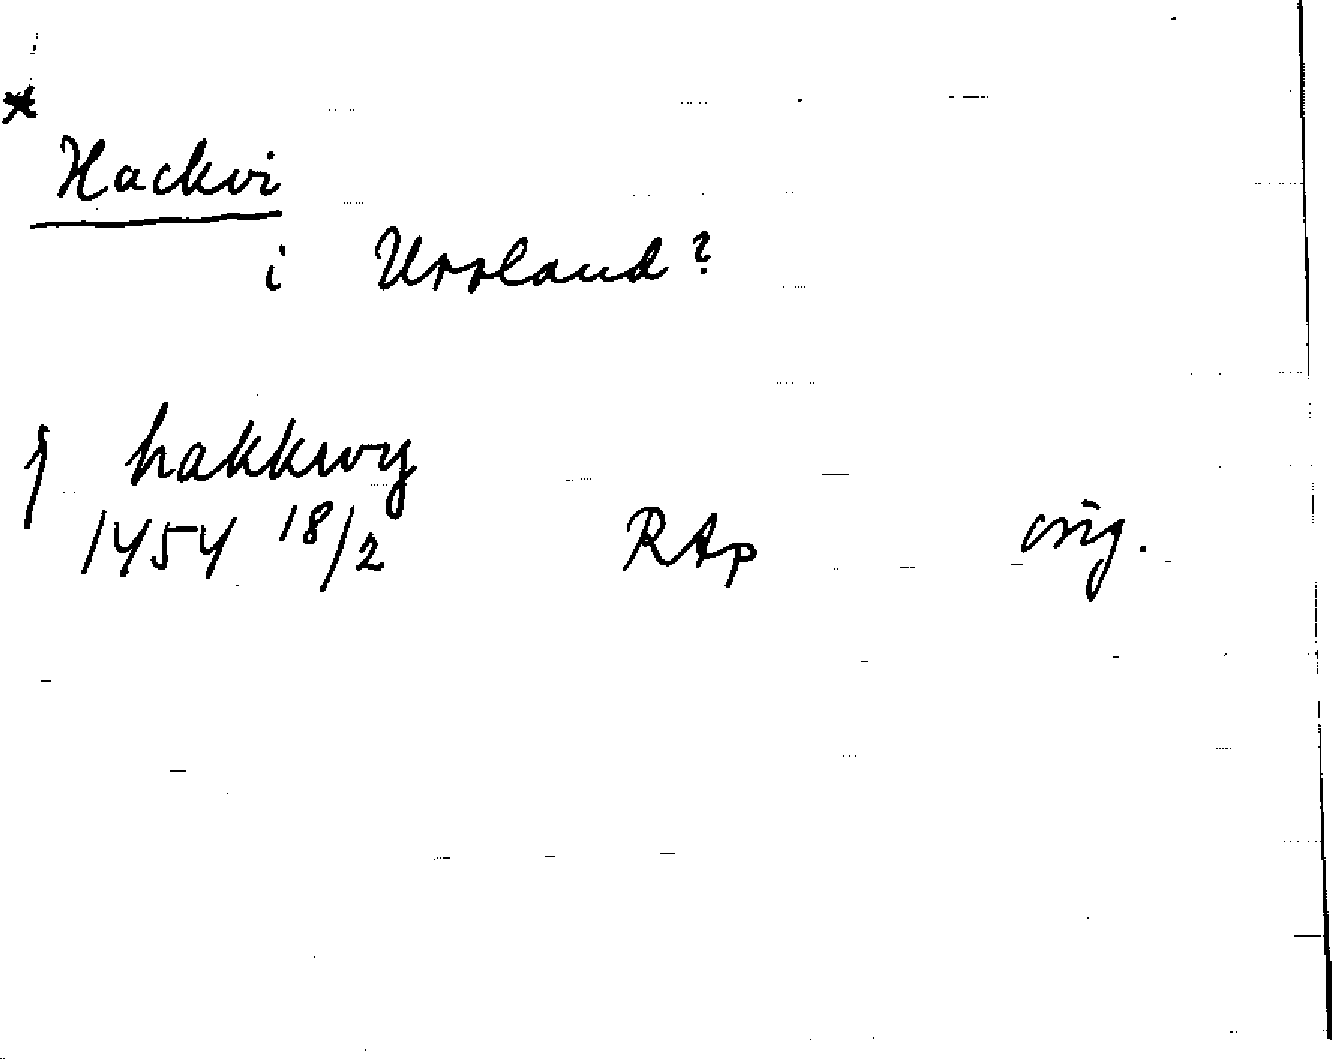 *
Hackvi
i Urvland?
} hakkwy
1454 18/2 RAp orig.